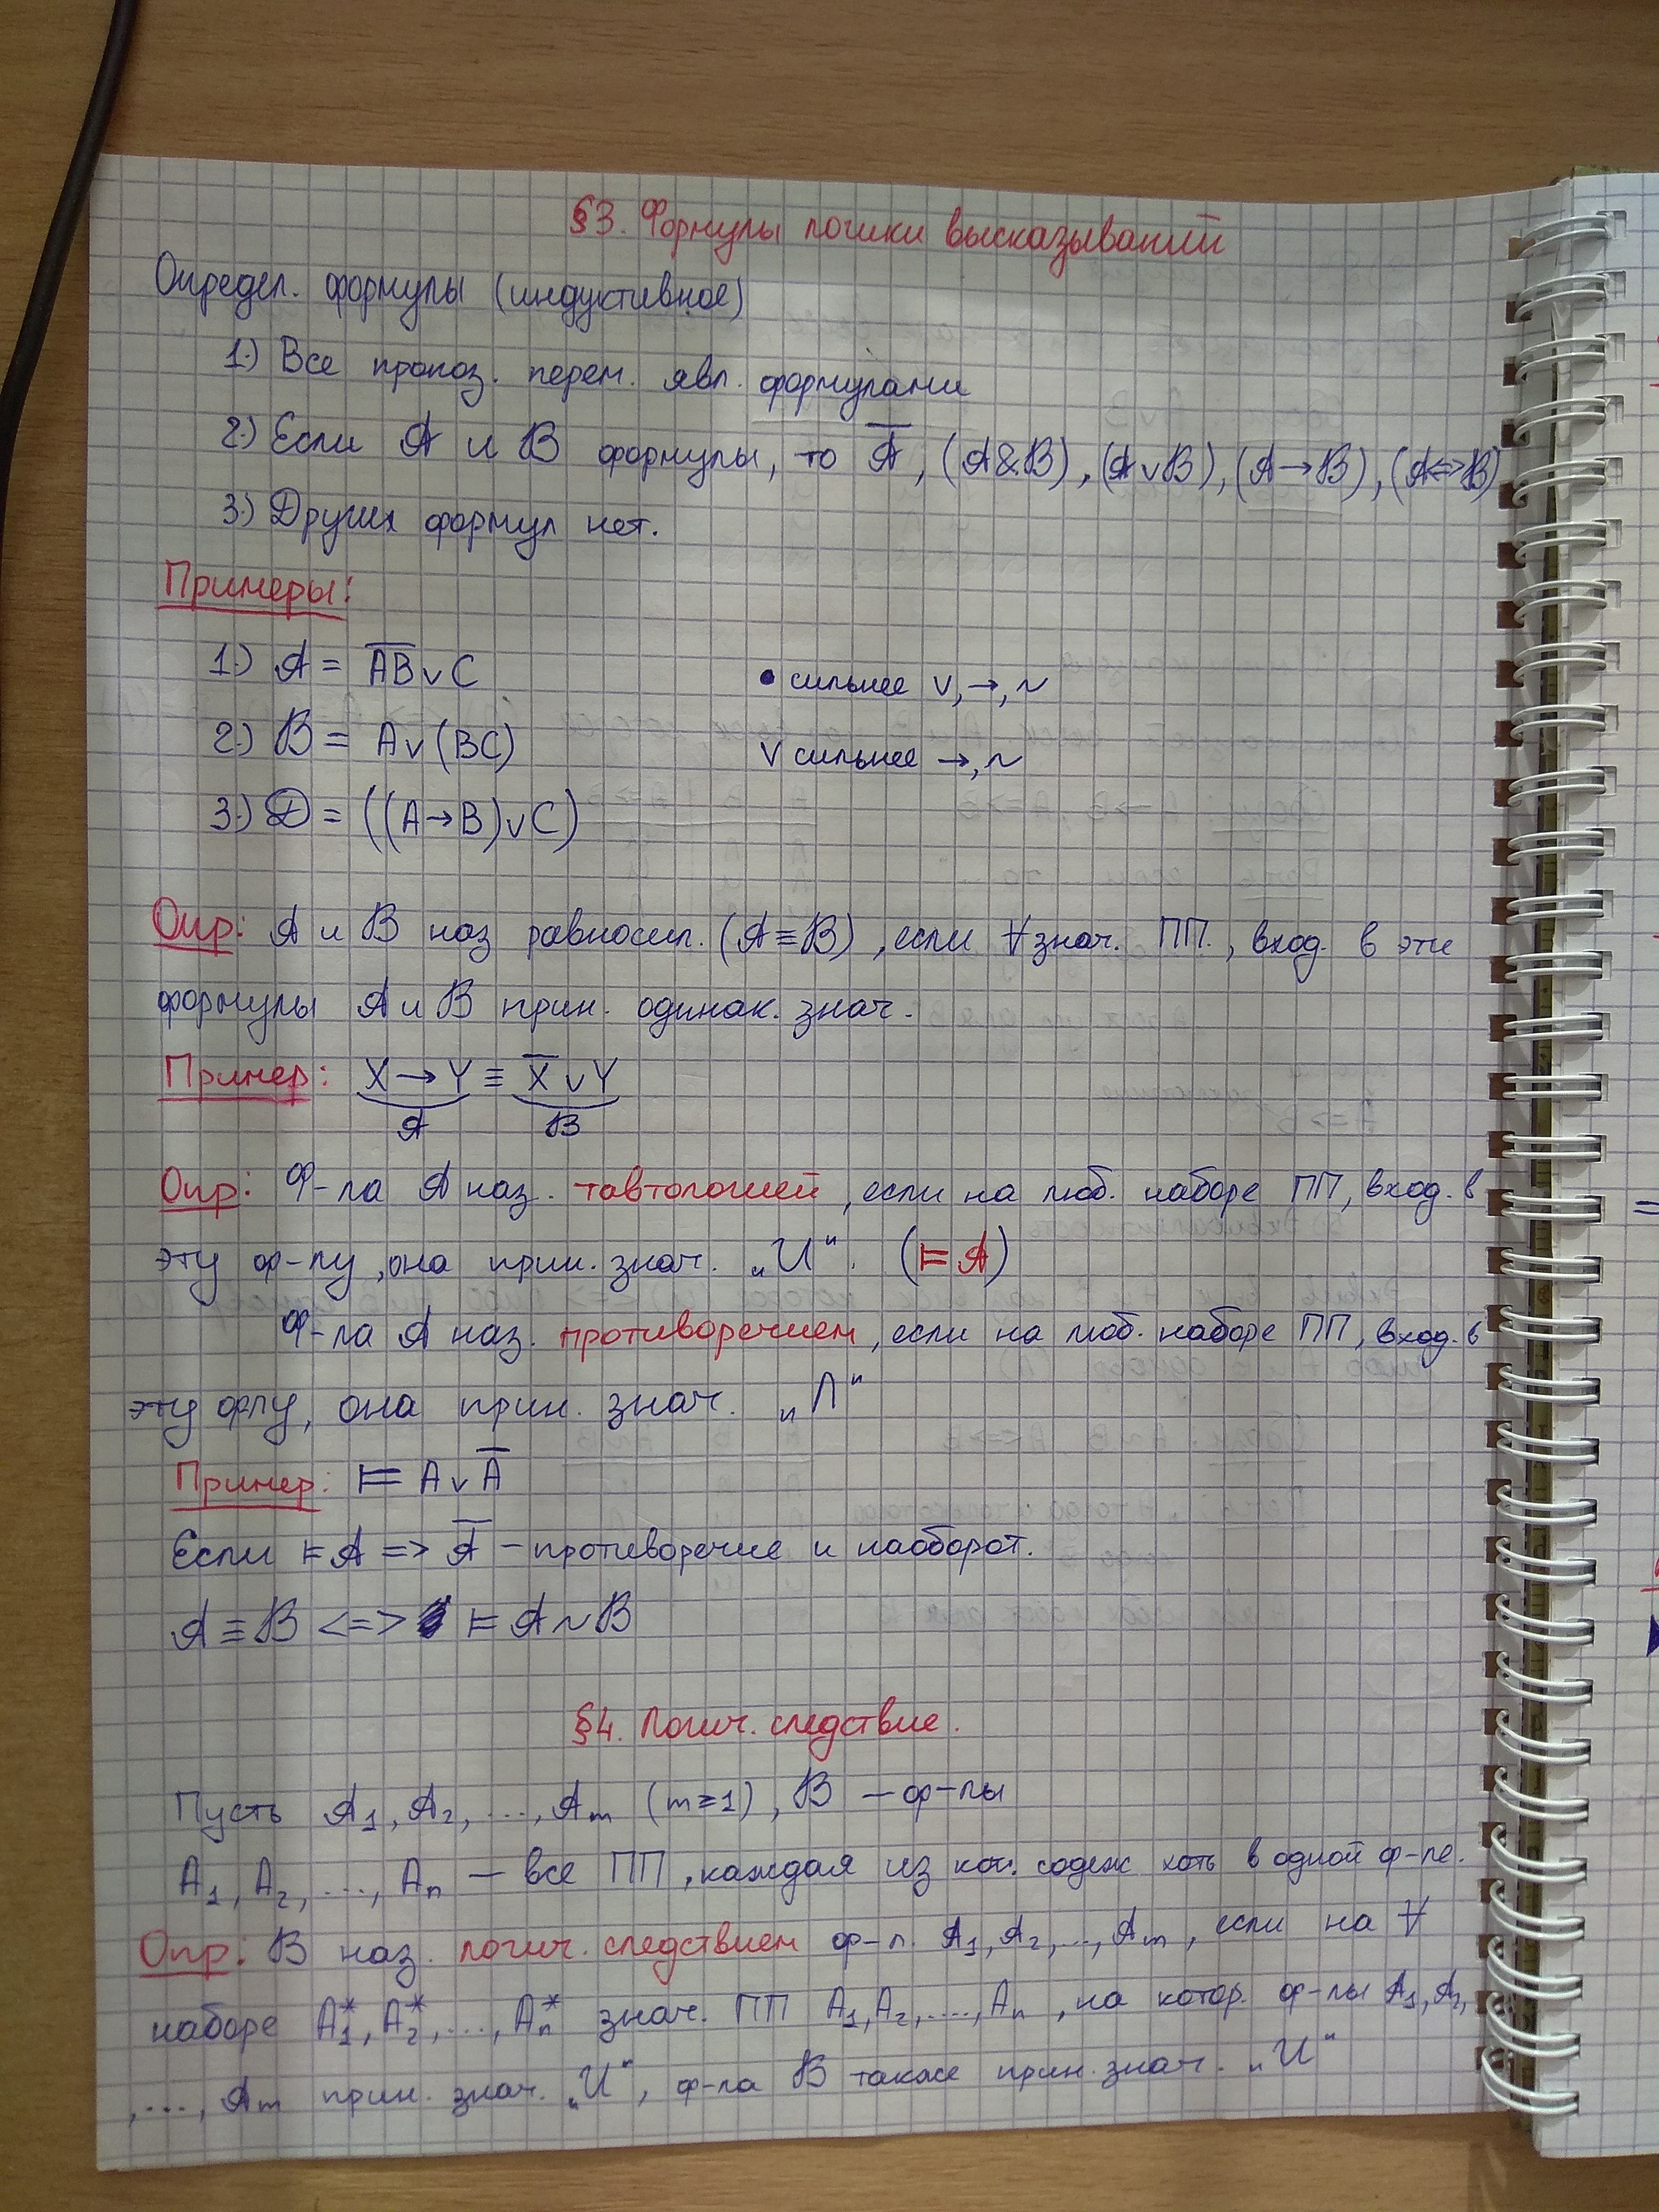 §3. Формулы логики высказываний
Определ. формулы (индуктивное)
1.) Все пропоз. перем. явл. формулами
2.) Если 𝒜 и ℬ формулы, то 𝒜̅, (𝒜&ℬ), (𝒜∨ℬ), (𝒜→ℬ), (𝒜<=>ℬ)
3.) Других формул нет.
Примеры:
1.) 𝒜 = A̅B̅∨C
• сильнее ∨,→,~
2.) ℬ = A∨(BC)
∨ сильнее →,~
3.) 𝒟 = ((A→B)∨C)
Опр: 𝒜 и ℬ наз равносил. (𝒜≡ℬ), если ∀ знач. ПП., вход. в эти
формулы 𝒜 и ℬ прин. одинак. знач.
Пример: X→Y ≡ X̅∨Y
𝒜 ℬ
Опр: Ф-ла 𝒜 наз. тавтологией, если на люб. наборе ПП, вход. в
эту ф-лу, она прин. знач. „И“. (⊨𝒜)
Ф-ла 𝒜 наз. противоречием, если на люб. наборе ПП, вход. в
эту флу, она прин. знач. „Л“
Пример: ⊨ A∨A̅
Если ⊨𝒜 => 𝒜̅ – противоречие и наоборот.
𝒜≡ℬ <=> ⊨ 𝒜~ℬ
§4. Логич. следствие.
Пусть 𝒜₁, 𝒜₂, ..., 𝒜ₘ (m≥1), ℬ – ф-лы
A₁, A₂, ..., Aₙ – все ПП, каждая из кот. содерж хоть в одной ф-ле.
Опр: ℬ наз. логич. следствием ф-л. 𝒜₁, 𝒜₂, ..., 𝒜ₘ, если на ∀
наборе A₁*, A₂*, ..., Aₙ* знач. ПП A₁, A₂, ..., Aₙ, на котор. ф-лы 𝒜₁, 𝒜₂,
, ..., 𝒜ₘ прин. знач. „И“, ф-ла ℬ также прин. знач. „И“